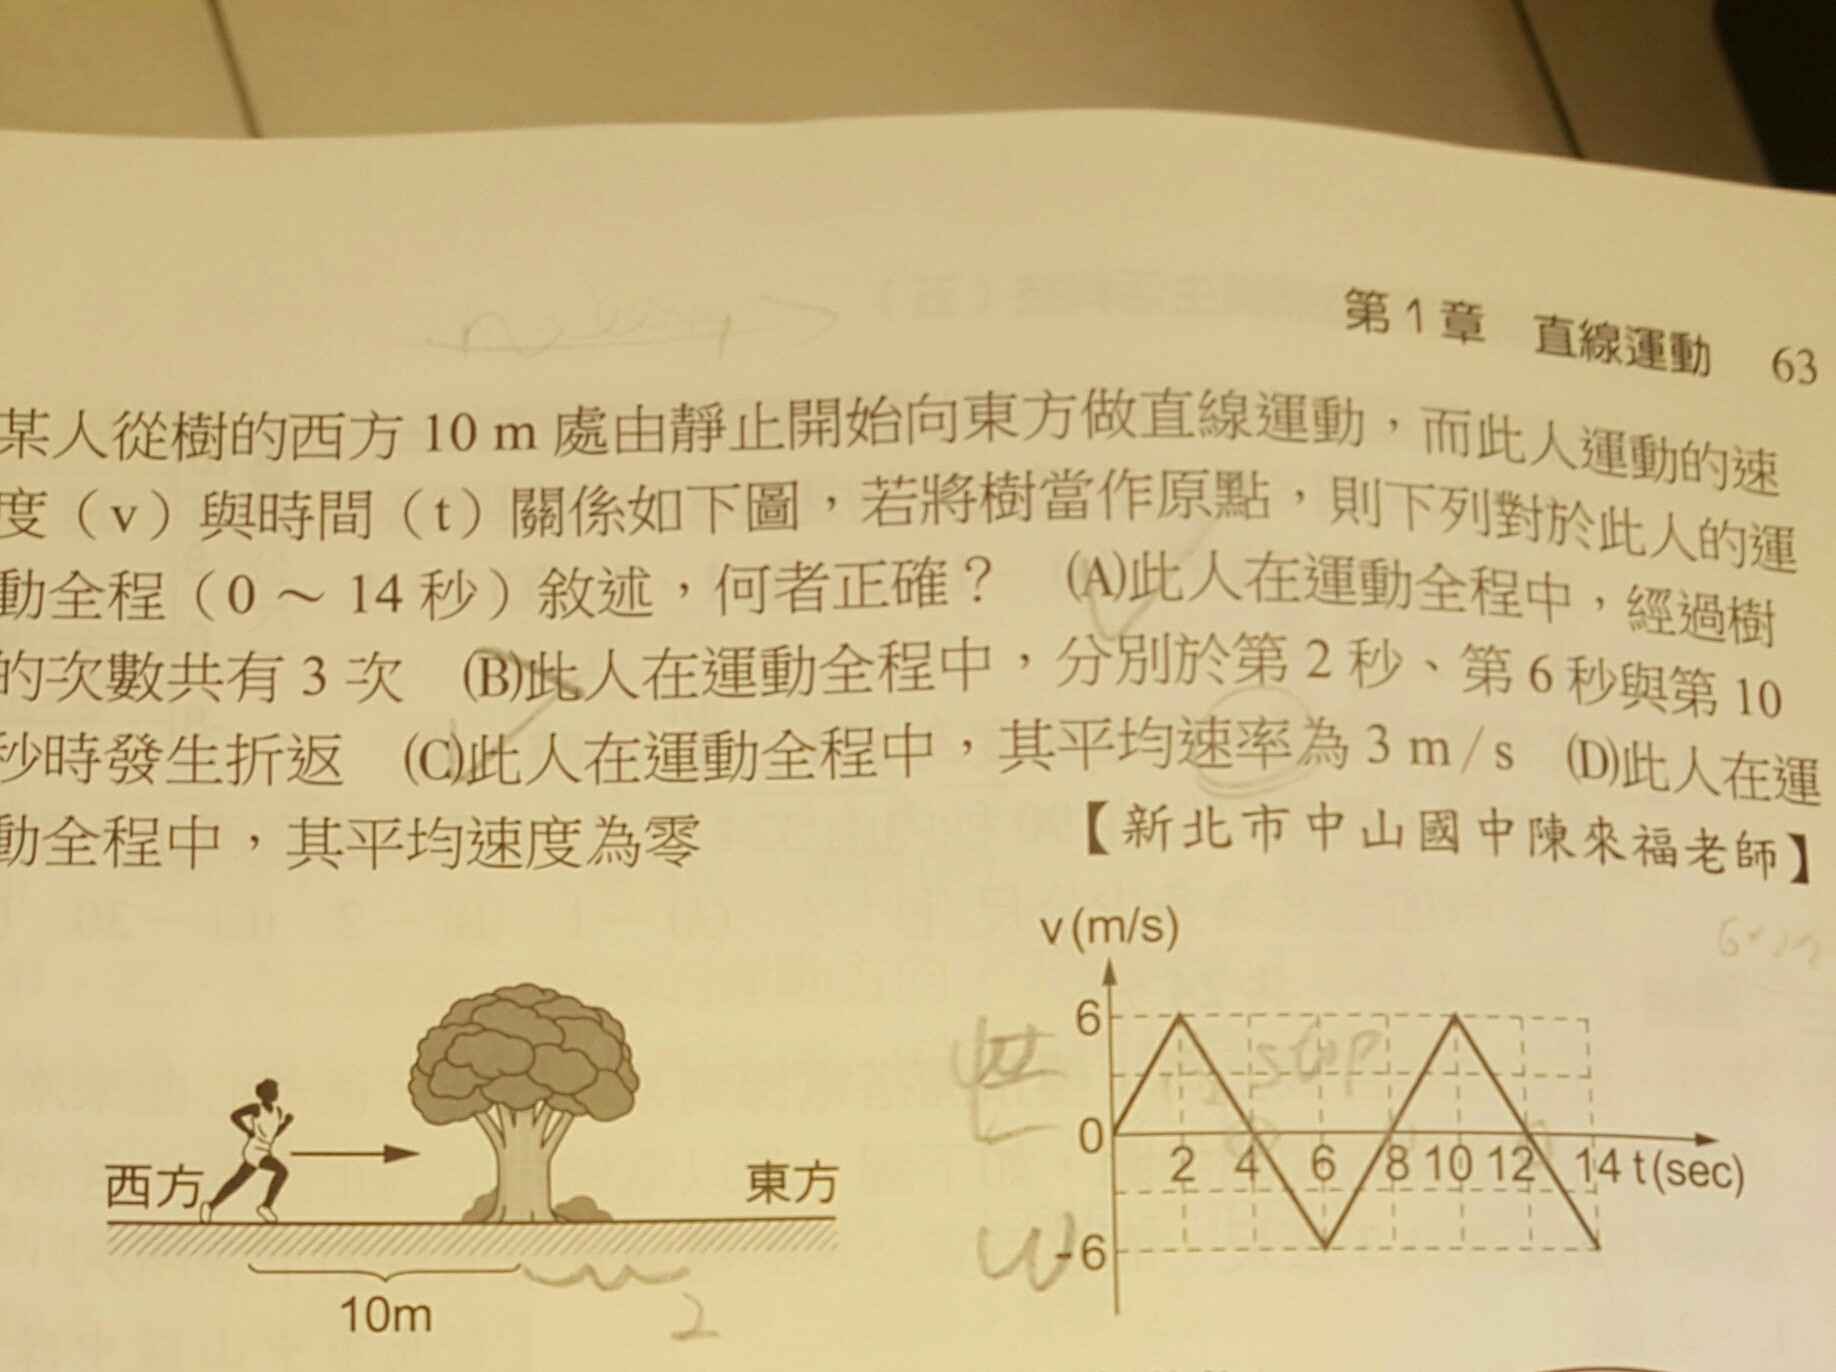 第1章 直線運動 63
某人從樹的西方 10 m 處由靜止開始向東方做直線運動,而此人運動的速
度(v)與時間(t)關係如下圖,若將樹當作原點,則下列對於此人的運
動全程(0～14秒)敘述,何者正確? (A)此人在運動全程中,經過樹
的次數共有3次 (B)此人在運動全程中,分別於第2秒、第6秒與第10
秒時發生折返 (C)此人在運動全程中,其平均速率為3 m/s (D)此人在運
動全程中,其平均速度為零 【新北市中山國中陳來福老師】
v(m/s)
6
stop
0
2 4 6 8 10 12 14 t(sec)
-6
西方
東方
10m
2